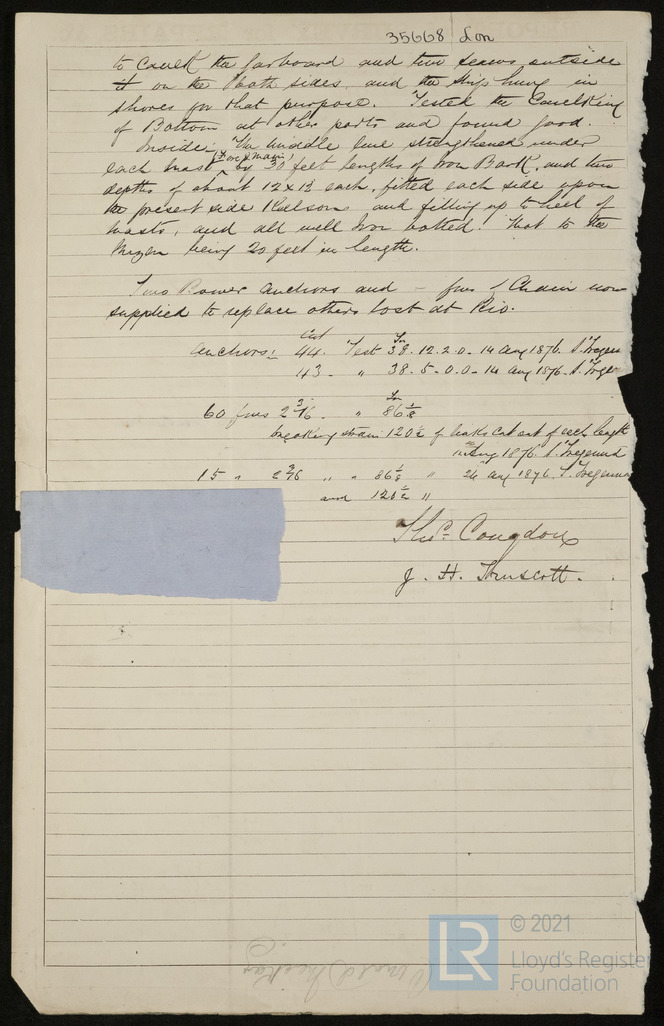 35668 Lon
to Caulk the garboard and two seams outside
it on the both sides and the Ship hung in
shores for that purpose. Tested the Caulking
of Bottom at other parts and found good.
Inside: The Middle line strengthened under
each mast (Fore & Main) by 30 feet lengths of Iron Bark, and two
depths of about 12 x 12 each, fitted each side upon
the present side Kelson and fitting up to heel of
masts, and all well Iron bolted. That to the
Mizen being 20 feet in length.
Two Bower Anchors and – fms of Chain now
supplied to replace others lost at Rio.
Cwt Tn
Anchors: 44. Test 38.12.2.0 - 14 Aug 1876. S.
43 - " 38.5.0.0 - 14 Aug 1876. S.
Tn
60 fms 2 3/16 - " 86 1/8
breaking strain 120 1/2 of links cut out of each length
Aug 1876. S.
15 " 2 3/16 " " 86 1/8 " 24 Aug 1876. S.
and 120 1/2 "
Thos. Congdon
J. H. Truscott.
© 2021
LR
Lloyd's Register
Foundation